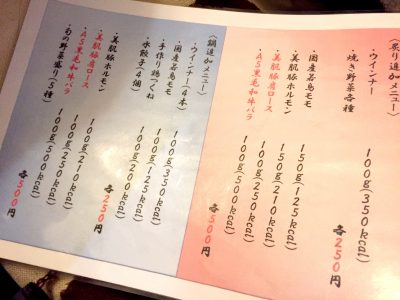 〈炙り追加メニュー〉
・焼き野菜各種
・ウインナー 100g(350kcal)
各250円
・国産若鳥モモ 150g(125kcal)
・美肌豚ホルモン 150g(210kcal)
・美肌豚肩ロース 100g(250kcal)
・A5黒毛和牛バラ 100g(500kcal)
各500円
〈鍋追加メニュー〉
・ウインナー(4本) 100g(350kcal)
・国産若鳥モモ 100g(125kcal)
・手作り鶏つくね 100g(200kcal)
・水餃子(4個)
各250円
・美肌豚ホルモン 100g(210kcal)
・美肌豚肩ロース 100g(250kcal)
・A5黒毛和牛バラ 100g(500kcal)
・旬の野菜盛り(5種)
各500円